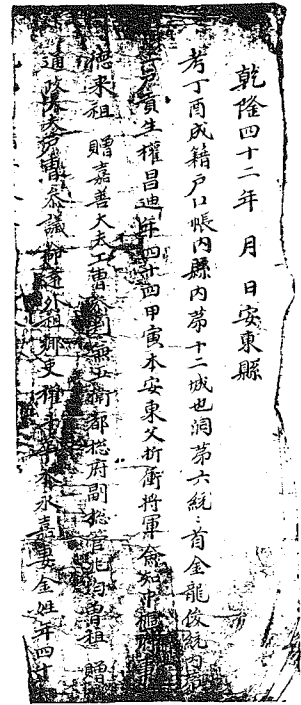 乾隆四十二年 月 日安東縣
考丁酉成籍戶口帳內縣內苐十二城也洞苐六統統首金龍俊統內苐
貢生權昌迪年四十四甲寅本安東父折衝將軍僉知中樞府事
德來祖 贈嘉善大夫工曹叅判五衛都摠府副摠管 曾祖 贈
通政大夫 曹叅議 外祖 永嘉妻金姓年四十